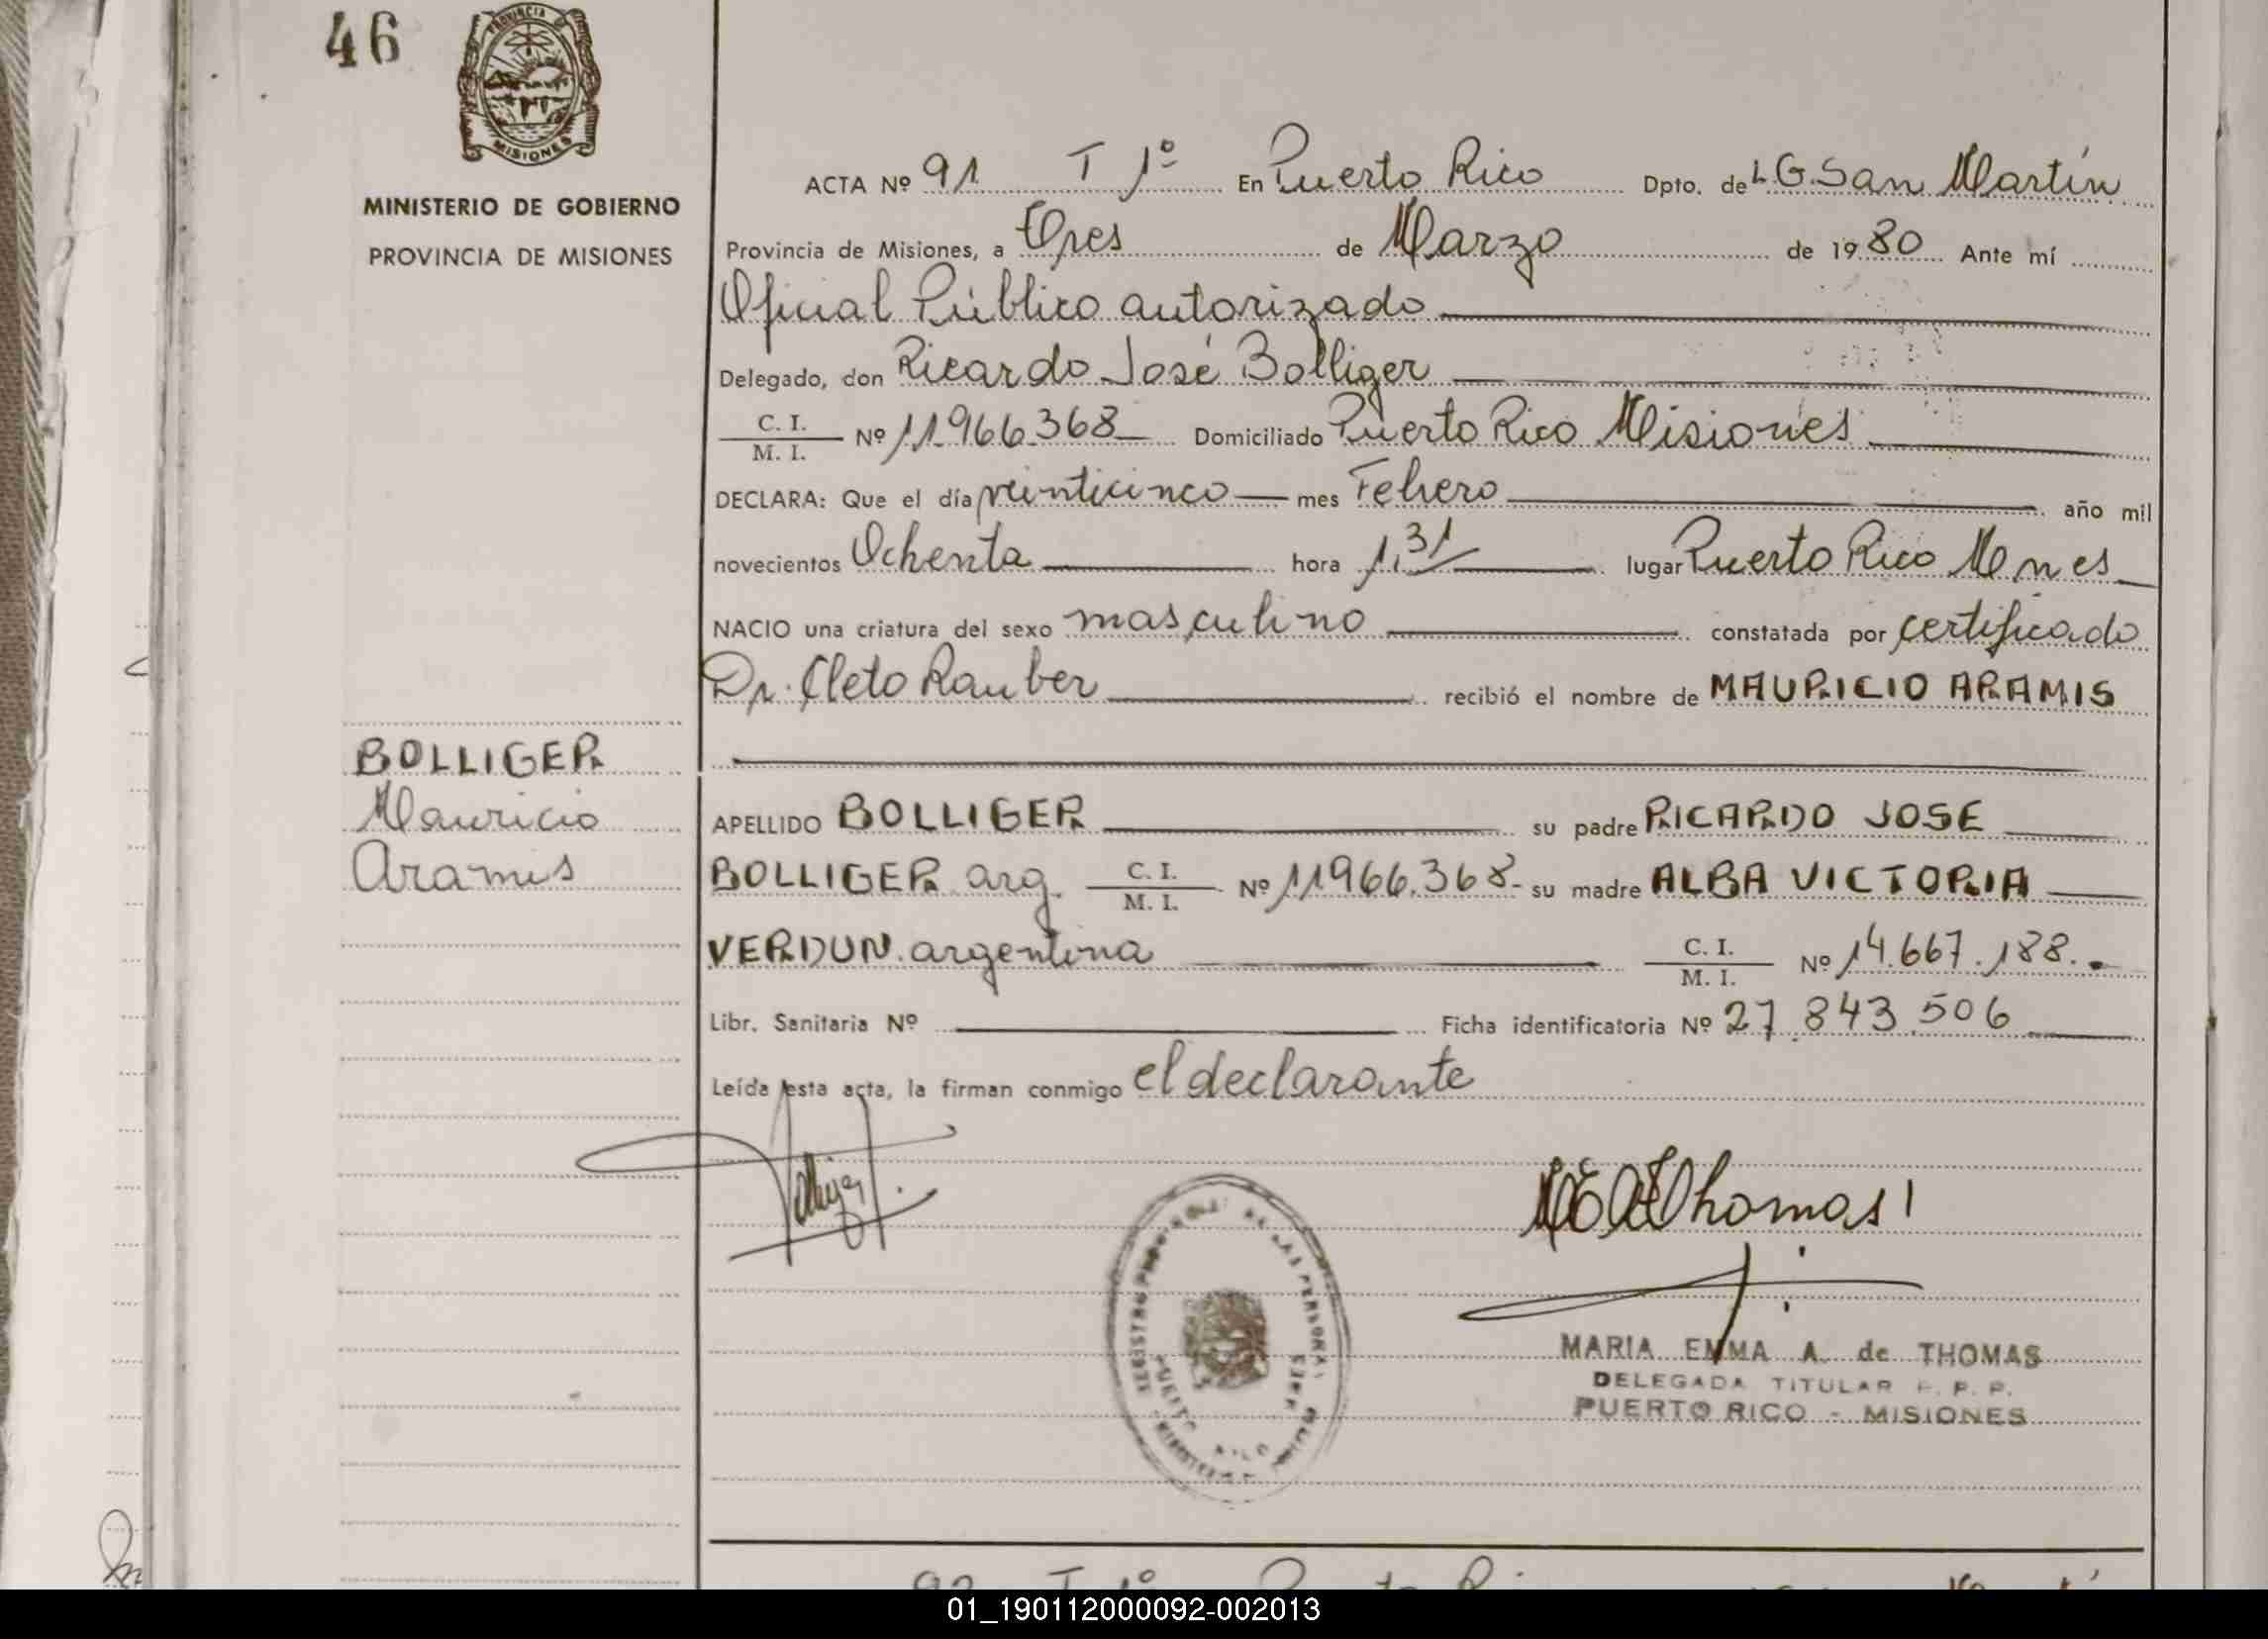 46
PROVINCIA DE
MISIONES
MINISTERIO DE GOBIERNO
PROVINCIA DE MISIONES
BOLLIGER
Mauricio
Aramis
ACTA Nº 91 T 1º En Puerto Rico Dpto. de L G San Martín
Provincia de Misiones, a Tres de Marzo de 1980 Ante mí
Oficial Público autorizado
Delegado, don Ricardo José Bolliger
C. I.
M. I. Nº 11966.368 Domiciliado Puerto Rico Misiones
DECLARA: Que el día veinticinco mes Febrero año mil
novecientos Ochenta hora 1,31 lugar Puerto Rico Mnes
NACIO una criatura del sexo masculino constatada por certificado
Dr. Cleto Rauber recibió el nombre de MAURICIO ARAMIS
APELLIDO BOLLIGER su padre RICARDO JOSE
BOLLIGER arg. C. I.
M. I. Nº 11966.368- su madre ALBA VICTORIA
VERDUN. argentina C. I.
M. I. Nº 14.667.188.
Libr. Sanitaria Nº Ficha identificatoria Nº 27.843.506
Leída esta acta, la firman conmigo el declarante
Thomas
MARIA EMMA A. de THOMAS
DELEGADA TITULAR
PUERTO RICO - MISIONES
01_190112000092-002013